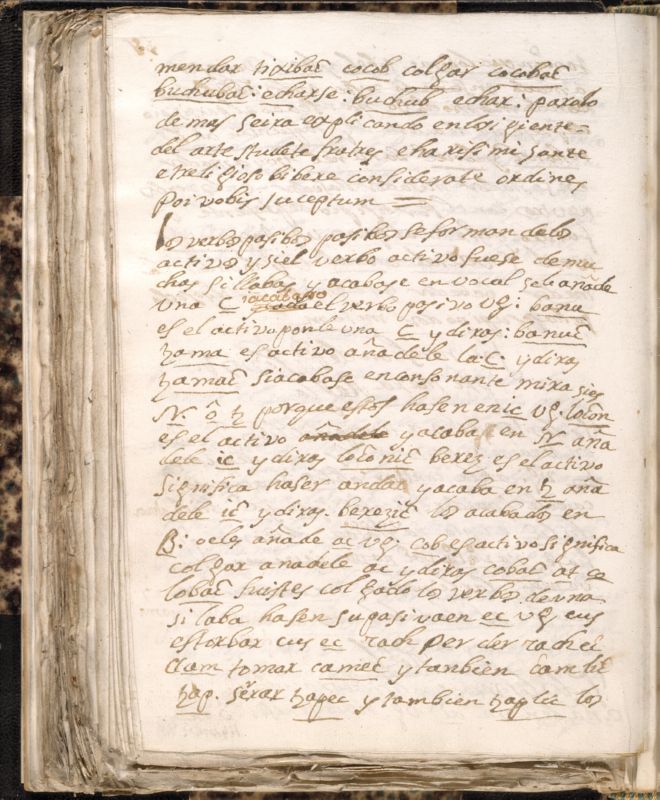 mendar tixibac cocob colgar cocobac
buchubac: echarse: buchub echar: parolo
de mas seira explicando en lo siguiente
del arte studete fratres charisimi sante
et religioso vivere considerate ordines
por vobis suceptum =
los verbos pasibos se forman de los
activos y si el verbo activo fuese de mu
chas sillabas y acabase en vocal se le añade
una C y acabado el verbo pasivo vg: banu
es el activo ponle una C y diras: banuc
tzama es activo añadele la: C y diras
tzamac si acabase en consonante mira si es
N. ô tz porque estos hasen en ic vg. locon
es el activo y acaba en N aña
dele ic y diras loconic berez es el activo
significa haser andar y acaba en tz aña
dele ic y diras. berezic los acabados en
B: o eles añade ac vg: cob es activo significa
colgar anadele ac y diras cobac at co
lobac fuistes colgado los verbos de una
silaba hasen su pasiva en ec vg cus
estorbar cus ec rach perder rachec
Cam tomar camec y tanbien camlic
tzap. serar tzapec y tambien tzaplic los